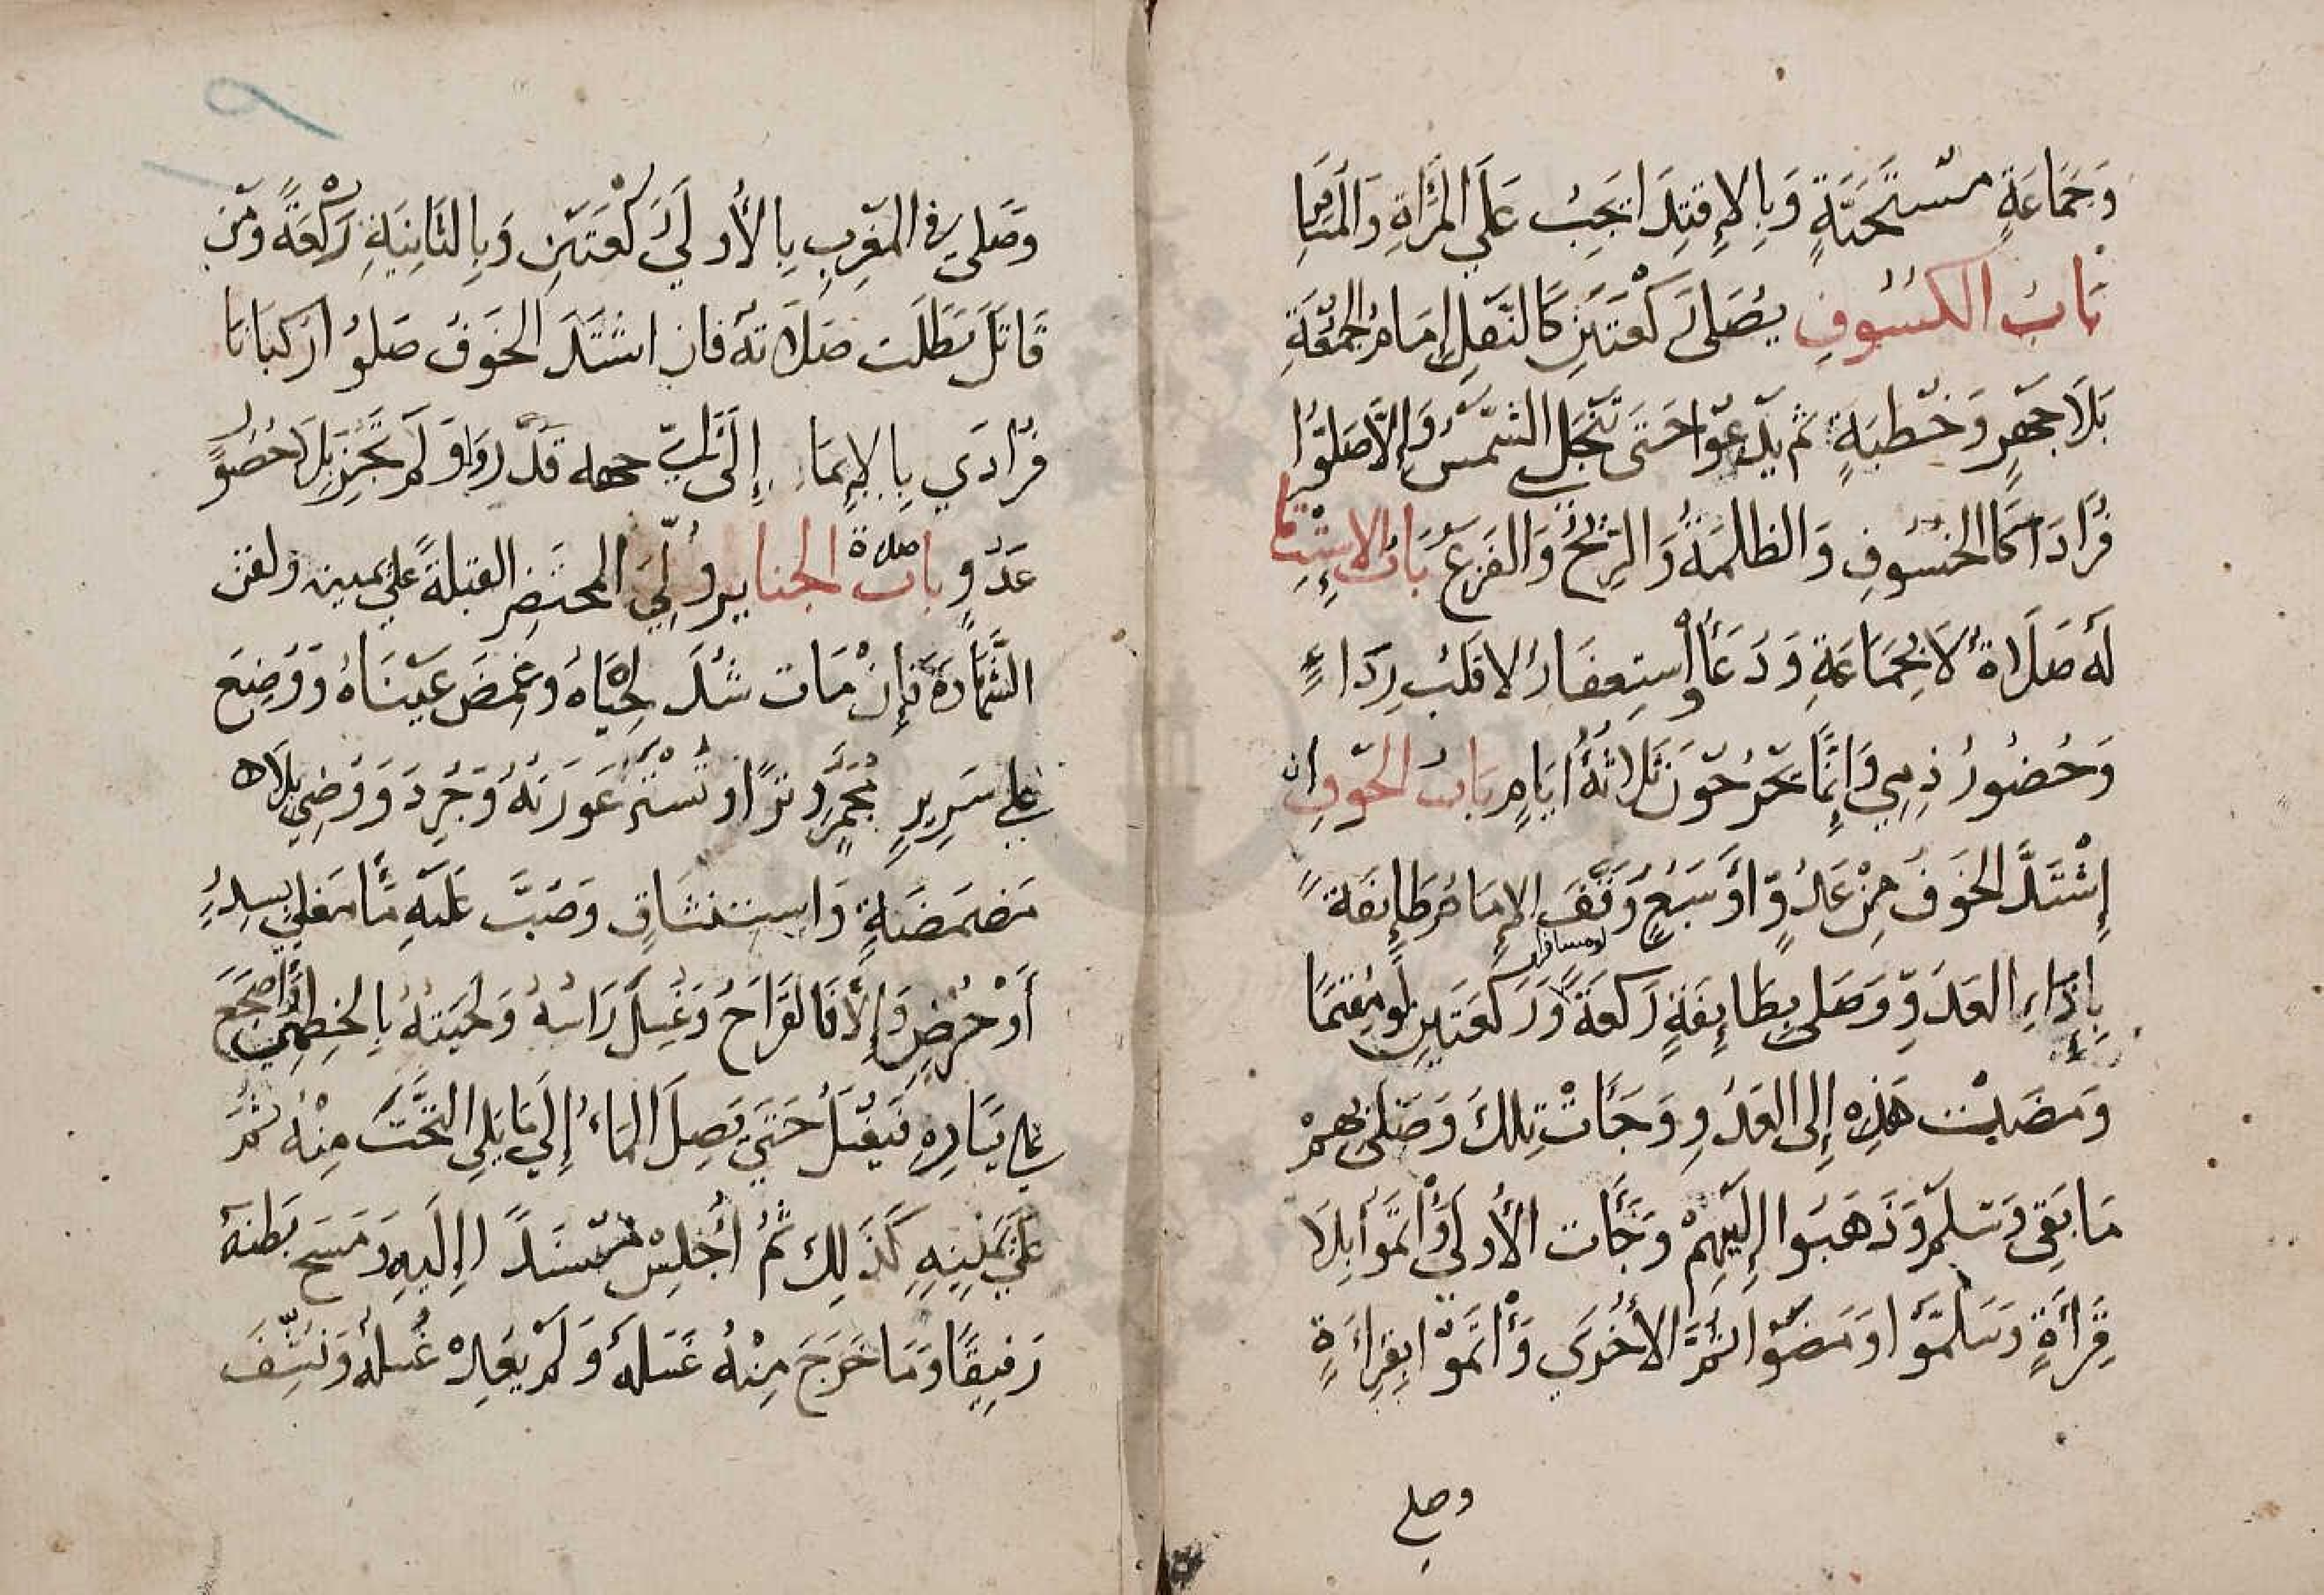 وَجَمَاعَةٍ مُسْتَحَبَّةٍ وَبِالاِقتِدَا يَجِبُ عَلَي المَرْأَةِ وَالمُسَافِرِ
بَابُ الكسُوفِ يُصَلي رَكْعَتَينِ كَالنَّفلِ إمَامُ الجُمْعَةِ
بَلَا جَهْرٍ وَخُطبَةٍ ثم يَدْعُوا حَتَى تَنْجَلِي الشَمسُ وَإِلَّا صَلوْا
فُرَادَا كَالخسُوفِ وَالظلمَةُ وَالرّيْحُ وَالفَزعِ بَابُ الاِسْتِسقَا
لَهُ صَلَاةُ لَا بِجَمَاعَةِ وَدَعَأُ وَاسْتِغفَارُ لا قَلبُ رِدَاءٍ
وَحُضُورُ ذِمِي وَإنَّمَا يَخْرُجُوْنَ ثَلَاثَةُ أَيَامٍ بَابُ الخَوْفِ ان
إِشْتَدَّ الخَوفُ مِنْ عَدُوٍّ اوْ سَبُعٍ وَقَفَ الاِمَامُ طَايِفَةً
بِإذَاءِ العَدُوِّ وَصَلى بِطَايِفَةٍ رَكعَةً لومسافرا وَرَكعَتَينِ لَو مُقِيمًا
وَمَضَيْت هَذِهِ إِلى العَدُوِ وَجَاَتْ تِلكَ وَصَلى بِهِمْ
مَا بَقِيَ وَسَلمَ وَذَهَبُوا إِلَيهِمْ وَجَأت الأُولَي وَأتَمَّوا بِلَا
قِرَأَةٍ وَسَلَمُوْا وَمَضَوْا ثُمَّ الأُخْرَي وَأَتَمَّوْا بِقِرَاءَةٍ
وصلي
وصَلي في المَغرِبِ بِالأُولَي رَكْعَتَينِ وَبِالثَانِيَةِ رَكْعَةً وَمَن
قَاتَلَ بَطَلَت صَلَاتُهُ فان اشتَدَ الخَوفُ صَلوُا رُكبَانَا
فُرَادَي بِالاِيمَاءِ إِلَى أَيِّ جهه قَدَروا وَلَمْ تَجُزْ بِلَا حُضُورِ
عَدُوٍ باب صلاة الجنايز وُلِّيَ المُحتَضِرُ القبلَةَ علي يمينه ولقن
الشَّهَادَةَ فَإِنْ مَات شُدَ لِحيَاهُ وَغُمِضَ عَينَاهُ وَوُضِعَ
علي سَرِيرٍ مُجَمَّرٍ وِترًا وتُسْتَرُ عَورَتُهُ وَجُرِدَ وَوُضِي بِلَا
مَضمَضَةٍ وَاسِتِنشَاقٍ وَصُبَّ عَليَهِ مَأ مَغلِي بِسِدرٍ
أَوْ حُرْضٍ وَإِلَّا فَالقَرَاحُ وَغُسِلَ رَاسُهُ وَلحيَتهُ بِالخِطمِي وَأُضجَعَ
علي يَسَارِهِ فَيُغسَلُ حَتَي يَصِلَ المَاءُ إِلَي مَا يَلِي التَّخَتَ مِنْهُ ثُمَّ
عَلَي يَمِينِهِ كَذَلِكَ ثُمُ أُجْلِسَ مُسْنَداً اِلَيهِ وَمَسَحَ بَطنَهُ
رَفِيقًا وَمَا خَرَجَ مِنْهُ غَسَلَهُ وَلَمْ يُعِدْ غُسلَهُ وَنُشِّفَ